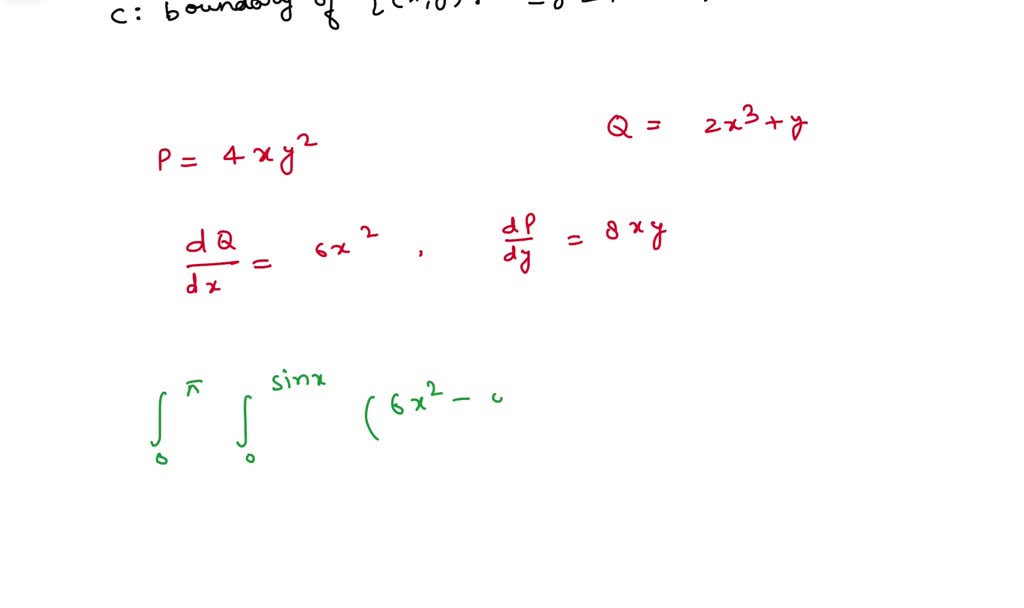 C: boundary of
P = 4xy²
Q = 2x³ + y
dQ/dx = 6x² , dP/dy = 8xy
∫₀^π ∫₀^sinx (6x² -